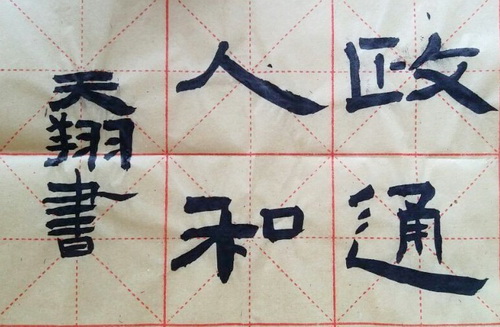 政通
人和
天翔書